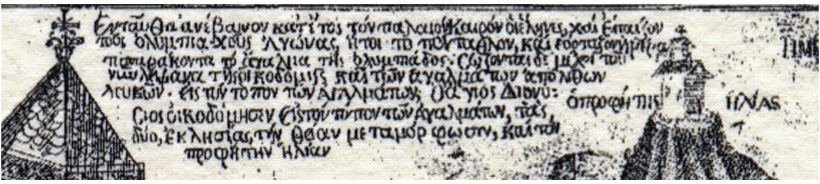 Ἐνταῦθα ἀνέβαινον κατ' ἔτος τόν παλαιόν Καιρόν ὁι ἕλληνες, καί ἔπαιζον
τούς ὀλυμπιακούς Ἀγώνας, ἤτοι τό πένταθλον, καί ἑόρταζον
τά ἀγάλματα τῆς ὀλυμπιάδος. Σώζονται δέ μέχρι τοῦ
νῦν λείψανα τῆς οἰκοδομῆς καί τῶν ἀγαλμάτων ἀπό λίθων
λευκῶν. εἰς τόν τόπον τῶν ἀγαλμάτων, ὁ ἅγιος Διονύ:
σιος ὠικοδόμησεν εἰς τόν τόπον τῶν ἀγαλμάτων, τάς
δύο, ἐκκλησίας, τήν θείαν μεταμόρφωσιν, καί τόν
προφήτην ἠλίαν
ὁ προφήτης ἠλίας